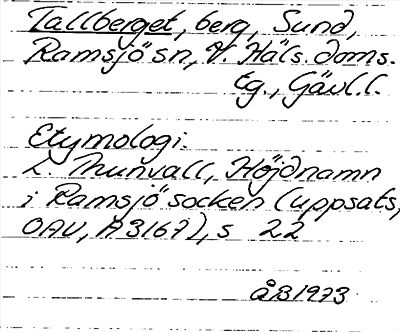 Tallberget, berg, Sund,
Ramsjö sn, V. Häls. doms.
tg., Gävl.l.
Etymologi.
L. Thunvall, Höjdnamn
i Ramsjö socken (uppsats,
OAU, A3167), s 22
ÅB 1973